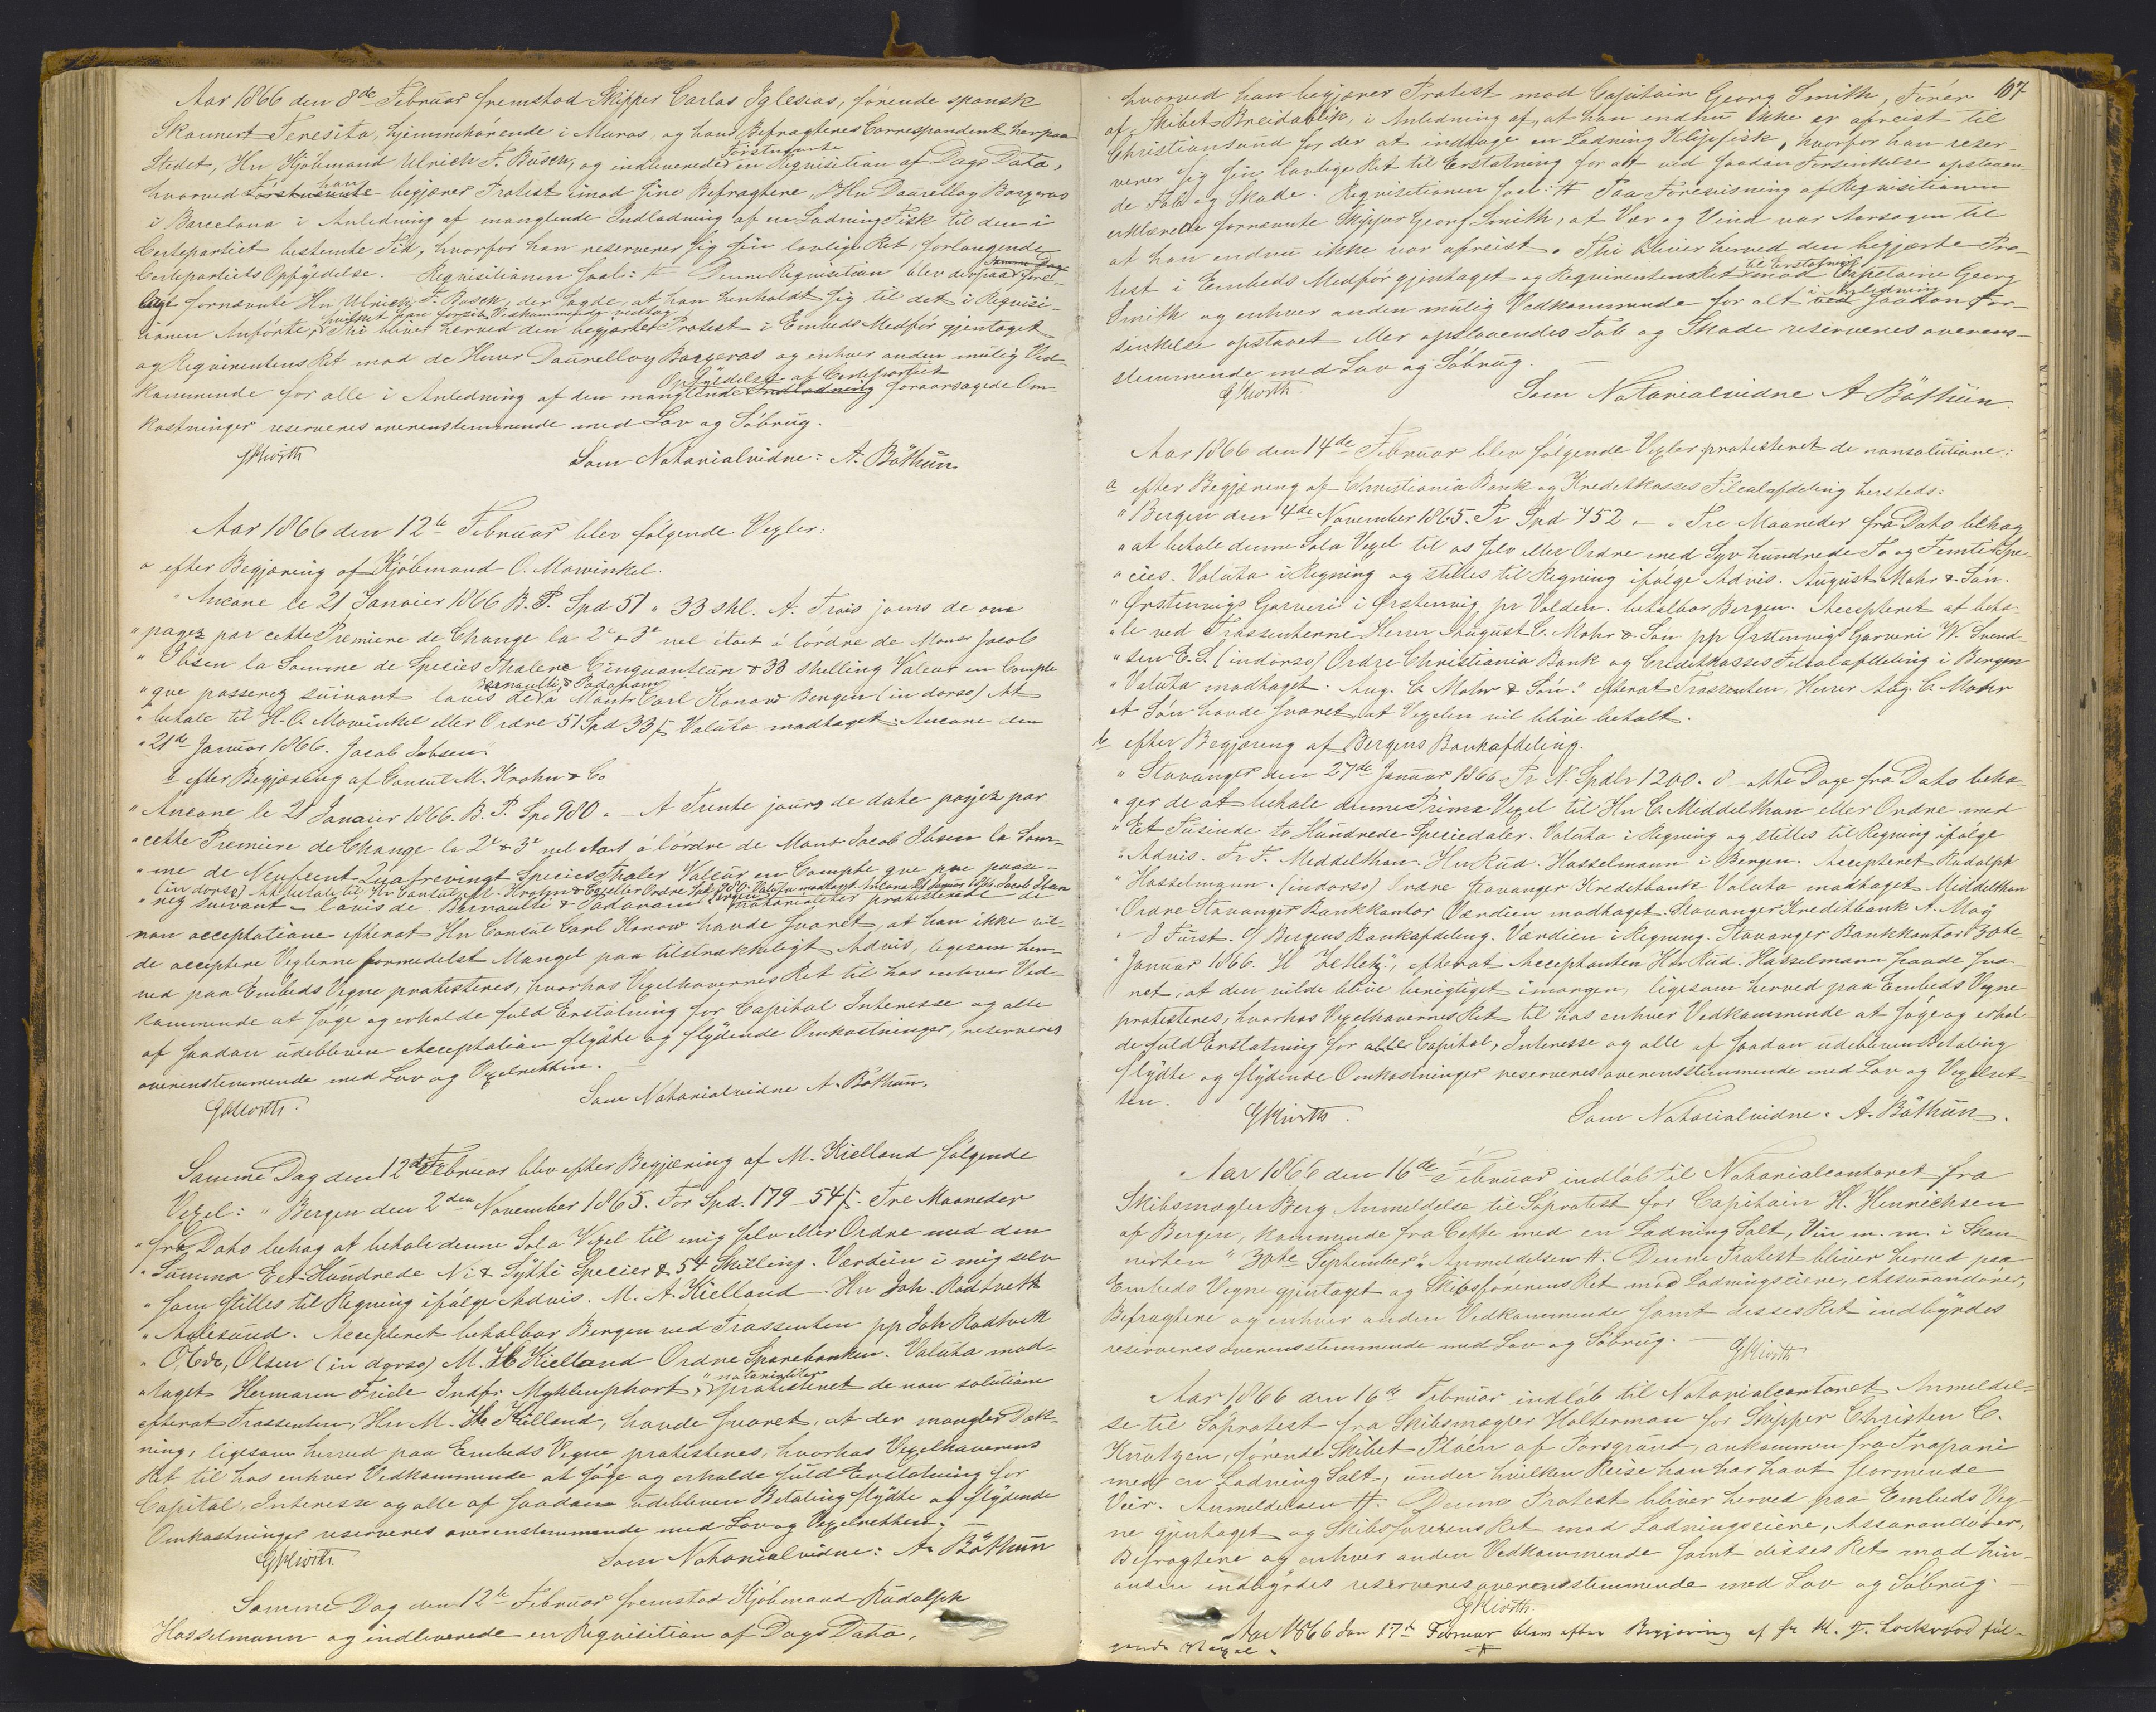 Aar 1866 den 8de Februar fremstod Skipper Carlos Iglesias, förende spansk
Skonnert Teresita, hjemmehörende i Muros, og hans Befragteres Correspondent herpaa
Stedet, Hr Kjöbmand Ulrich F. Busch, og indleverede förstnævnte en Reqvisition af Dags Dato,
hvorved Förstnævnte han begjærer Protest imod sine Befragtere, Hr Daurellay Bargeras
i Barcelona i Anledning af manglende Indladning af en Ladning Fisk til den i
Certepartiet bestemte Tid, hvorfor han reserverer sig sin lovlige Ret, forlangende
Certepartiets Opfyldelse. Reqvisitionen saal: # Denne Reqvisition blev derpaa samme Dag fore-
lagt fornævnte Hr Ulrich F. Busch, der sagde, at han henholdt sig til det i Reqvisi-
tionen Anförte, hvilket han forsit Vedkommende vedtog. Thi bliver herved den begjærte Protest i Embeds Medför gjentaget
og Reqvirentens Ret mod de Herrer Daurellay Bargeras og enhver anden mulig Ved-
kommende for alle i Anledning af den manglende Indladning Opfyldelse af Certepartiet foraarsagede Om-
kostninger reserveres overenstemmende med Lov og Söbrug.
GKiorth
Som Notarialvidne: A. Böthun
Aar 1866 den 12te Februar blev fölgende Vexler:
a efter Begjæring af Kjöbmand O. Mowinkel.
" Ancone le 21 Janvier 1866 B. P. Spd 51 " 33 skl. A. Trois jours de vue
" payez par cette Premiere de Change la 2e & 3e nel étant á l'ordre de Monsr Jacob
" Ibsen la Somme de Species Thalere Cinquanteun & 33 skelling Valeur en Compte
" que passerez suivant lavis de Bernaulli & Padovani á Monsr Carl Konow Bergen (in dorso) At
" betale til H. O. Mowinkel eller Ordre 51 Spd 33 ſ Valuta modtaget. Ancone den
" 21de Januar 1866. Jacob Ibsen.
b efter Begjæring af Consul M. Krohn & Co
" Ancone le 21 Janvier 1866. B. P. Sp. 980 " – A Trente jours de date payez par
" cette Premiere de Change la 2e & 3e nel étant á l'ordre de Monsr Jacob Ibsen la Som-
" me de Neufcent Quatrevingt Speciesthaler Valeur en Compte que passe-
" rez suivant lavis de Bernaulli & Padovani Bergen (in dorso) At betale til Hr Consul M. Krohn & Co eller Ordre Spd 980. Valuta modtaget Ancona 21 Januar 1866 Jacob Ibsen notarialiter protesterede de
non acceptatione efterat Hr Consul Carl Konow havde svaret, at han ikke vil-
de acceptere Vexlerne formedelst Mangel paa tilstrækkeligt Advis, ligesom her-
ved paa Embeds Vegne protesteres, hvorhos Vexelhavernes Ret til hos enhver Ved-
kommende at söge og erholde fuld Erstatning for Capital Interesse og alle
af saadan udebleven Acceptation flydte og flydende Omkostninger, reserveres
overenstemmende med Lov og Vexelretten.
GKiorth.
Som Notarialvidne A. Böthun.
Samme Dag den 12te Februar blev efter Begjæring af M. Kielland fölgende
Vexel: " Bergen den 2den November 1865. For Spd. 179 – 54 ſ. Tre Maaneder
" fra Dato behag at betale denne Sola Vexel til mig selv eller Ordre med den
" Summa Eet Hundrede Ni & Sÿtti Specier & 54 Skilling. Værdien i mig selv
" som stilles til Regning ifölge Advis. M. A. Kielland. Hr Joh. Rodtvett
" Aalesund. Accepteret betalbar Bergen ved Trassenten pp Joh Rodtvett
" O. Olsen (in dorso) M. Kielland Ordre Sparebanken. Valuta mod-
" taget Hermann Friele Indfr. Myhlenphort," notarialiter protesteret de non solutione
efterat Trassenten, Hr M. Kielland, havde svaret, at der mangler Dæk-
ning, ligesom herved paa Embeds Vegne protesteres, hvorhos Vexelhaverens
Ret til hos enhver Vedkommende at söge og erholde fuld Erstatning for
Capital, Interesse og alle af saadan udebleven Betaling flydte og flydende
Omkostninger reserveres overenstemmende med Lov og Vexelretten.
GKiorth
Som Notarialvidne: A. Böthun
Samme Dag den 12te Februar fremstod Kjöbmand Rudolph
Hasselmann og indleverede en Reqvisition af Dags Dato,
107
hvorved han begjærer Protest mod Capitain Georg Smith, Förer
af Skibet Breidablik, i Anledning af, at han endnu ikke er afreist til
Christiansund for der at indtage en Ladning Klipfisk, hvorfor han reser-
verer sig sin lovlige Ret til Erstatning for alt ved saadan Forsinkelse opstaaen-
de Tab og Skade. Reqvisitionen saal: # Paa Forevisning af Reqvisitionen
erklærede fornævnte Skipper Georg Smith, at Veir og Vind var Aarsagen til
at han endnu ikke var afreist. Thi bliver herved den begjærte Pro-
test i Embeds Medför gjentaget og Reqvirentens Ret til Erstatning mod Capitaine Georg
Smith og enhver anden mulig Vedkommende for alt ved i Anledning saadan For-
sinkelse opstaaet eller opstaaendes Tab og Skade reserveres overens-
stemmende med Lov og Söbrug.
GKiorth
Som Notarialvidne A Böthun.
Aar 1866 den 14de Februar blev fölgende Vexler protesteret de nonsolutione:
a efter Begjæring af Christiania Bank og Kreditkasses Filealafdeling hersteds:
" Bergen den 4de November 1865. Pr Spd 752 " – . Tre Maaneder fra Dato behag
" at betale denne Sola Vexel til os selv eller Ordre med Syv hundrede To og Femti Spe-
" cies. Valuta i Regning og stilles til Regning ifölge Advis. August Mohr & Sön.
" Örstenvigs Garveri i Örstenvig pr Volden. betalbar Bergen. Accepteret at beta-
" le ved Trassenterne Herrer August C. Mohr & Sön pp Örstenvigs Garveri W. Svend-
" sen E. S. (indorso) Ordre Christiania Bank og Creditkasses Filialafdeling i Bergen
" Valuta modtaget. Aug. C. Mohr & Sön." efterat Trassenten, Herrer Aug. C. Mohr
& Sön havde svaret, at Vexelen vil blive betalt.
b efter Begjæring af Bergens Bankafdeling.
" Stavanger den 27de Januar 1866 Pr N. Spdlr 1200. 8 – otte Dage fra Dato beha-
" ger de at betale denne Prima Vexel til Hr C. Middelthon eller Ordre med
" Eet Tusinde to Hundrede Speciedaler. Valuta i Regning og stilles til Regning ifölge
" Advis. Fr F. Middelthon. Hr Rud. Hasselmann i Bergen. Accepteret Rudolph
" Hasselmann. (indorso) Ordre Stavanger Kreditbank Valuta modtaget Middelthon
" Ordre Stavanger Bankkontor Værdien modtaget. Stavanger Kreditbank A. Moÿ
" J Fürst. / Bergens Bankafdeling. Værdien i Regning. Stavanger Bankkontor 30te
" Januar 1866. H Zetlitz", efterat Acceptanten Hr Rud. Hasselmann havde sva-
ret, at den vilde blive berigtiget imorgen, ligesom herved paa Embeds Vegne
protesteres, hvorhos Vexelhavernes Ret til hos enhver Vedkommende at söge og erhol-
de fuld Erstatning for alle Capital, Interesse og alle af saadan udebleven Betaling
flydte og flydende Omkostninger reserveres overensstemmende med Lov og Vexelret-
ten.
GKiorth.
Som Notarialvidne: A. Böthun.
Aar 1866 den 16de Februar indlöb til Notarialcontoret fra
Skibsmægler Berg Anmeldelse til Söprotest for Capitain H. Henrichsen
af Bergen, kommende fra Cette med en Ladning Salt, Vin m. m. i Skon-
nerten " 30te September". Anmeldelsen #. Denne Protest bliver herved paa
Embeds Vegne gjentaget og Skibsförerens Ret mod Ladningseiere, Assurandörer,
Befragtere og enhver anden Vedkommende samt disses Ret indbÿrdes
reserveres overensstemmende med Lov og Söbrug. – GKiorth
Aar 1866 den 16de Februar indlöb til Notarialcontoret Anmeldel-
se til Söprotest fra Skibsmægler Halterman for Skipper Christen C.
Knutzen, förende Skibet Ploën af Porsgrund, ankommen fra Trapani
med en Ladning Salt, under hvilken Reise han har havt stormende
Veir. Anmeldelsen #. Denne Protest bliver herved paa Embeds Veg-
ne gjentaget og Skibsförerens Ret mod Ladningseiere, Assurandörer,
Befragtere og enhver anden Vedkommende samt disses Ret mod hin-
anden indbÿrdes reserveres overensstemmende med Lov og Söbrug.
GKiorth.
Aar 1866 den 17de Februar blev efter Begjæring af Hr M. T. Lockwood föl-
gende Vexel: